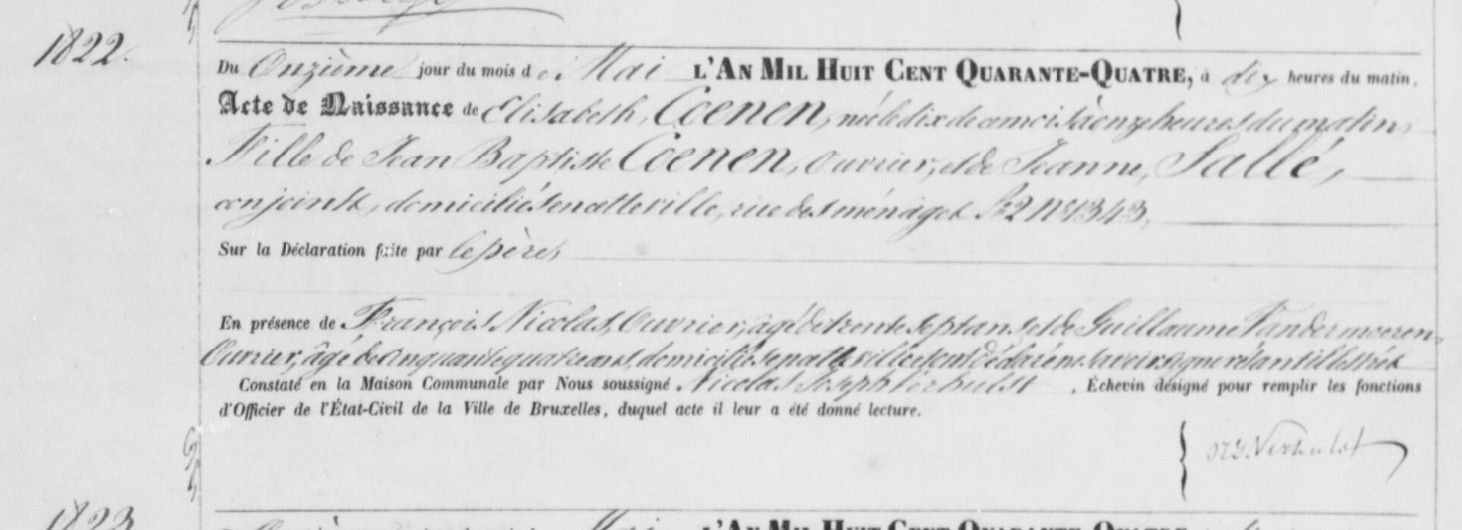 1822.
Du Onzième jour du mois de Mai L'AN MIL HUIT CENT QUARANTE-QUATRE, à dix heures du matin,
Acte de Naissance de Elisabeth, Coenen, née le dix de ce mois à onze heures du matin,
Fille de Jean Baptiste Coenen, Ouvrier, et de Jeanne, Sallé,
conjoints, domiciliés en cette ville, rue des ménages S. 2 N° 1343,
Sur la Déclaration faite par le père,
En présence de François Nicolas, Ouvrier, âgé de trente sept ans et de Guillaume Vandermoeren,
Ouvrier, âgé de cinquante quatre ans, domiciliés en cette ville, lesquels ont déclaré ne savoir signer étant illettrés
Constaté en la Maison Communale par Nous soussigné Nicolas Joseph Verhulst, Echevin désigné pour remplir les fonctions
d'Officier de l'État-Civil de la Ville de Bruxelles, duquel acte il leur a été donné lecture.
Verhulst
1823
Onzième Mai L'AN MIL HUIT CENT QUARANTE-QUATRE